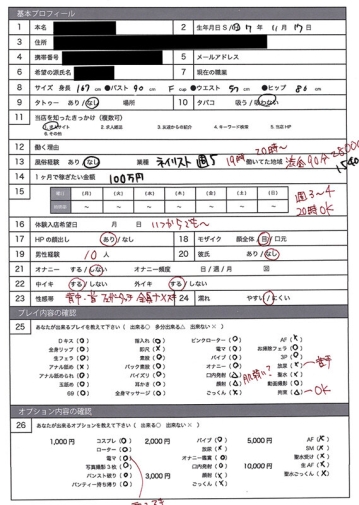 基本プロフィール
1 本名
2 生年月日 S/H 17年 11月 17日
3 住所
4 携帯番号
5 メールアドレス
6 希望の源氏名
7 現在の職業
8 サイズ 身長 167 cm ●バスト 90 cm F cup ●ウエスト 57 cm ●ヒップ 86 cm
9 タトゥー あり/なし 場所
10 タバコ 吸う/吸わない
11 当店を知ったきっかけ（複数可）
1. 求人サイト 2. 求人雑誌 3. 友達からの紹介 4. キーワード検索 5. 当店HP
6. その他
12 働く理由
20時〜
13 風俗経験 あり/なし 業種 ネイリスト 週5 19時 働いてた地域 渋谷 90分 25000
1540
14 1ヶ月で稼ぎたい金額 100万円
15 (月) (火) (水) (木) (金) (土) (日)
週3〜4
20時OK
16 体験入店希望日 月 日 いつからでも〜
17 HPの顔出し あり/なし
18 モザイク 顔全体/目/口元
19 男性経験 10人
20 彼氏 あり/なし
21 オナニー する/しない オナニー頻度 日/週/月 回
22 中イキ する/しない 外イキ する/しない
23 性感帯
24 濡れ やすい/にくい
プレイ内容の確認
25 あなたが出来るプレイを教えて下さい（ 出来る○ 多分出来る△ 出来ない× ）
Dキス (O) 指入れ (O) ピンクローター (O) AF (X)
全身リップ (O) 即尺 (O) 電マ (O) お掃除フェラ (O)
生フェラ (O) 素股 (O) バイブ (O) 3P (O)
アナル舐め (X) バック素股 (O) オナニー (O) 放尿 (X)
アナル舐められ (O) パイズリ (O) 口内発射 (△) 聖水 (X)
玉舐め (O) 耳かき (O) 顔射 (△) 動画撮影 (O)
69 (O) 全身マッサージ (O) ごっくん (X) 拘束 (△) OK
オプション内容の確認
26 あなたが出来るオプションを教えて下さい（ 出来る○ 出来ない× ）
1,000円 コスプレ (O) 2,000円 バイブ (O) 5,000円 AF (X)
ローター (O) 放尿 (X) SM (X)
電マ (O) オナニー鑑賞 (O) 聖水受け (X)
写真撮影3枚 (O) 口内発射 (O) 10,000円 生AF (X)
パンスト破り (O) 3,000円 顔射 (X) 聖水ごっくん (X)
パンティー持ち帰り (O) ごっくん (X)